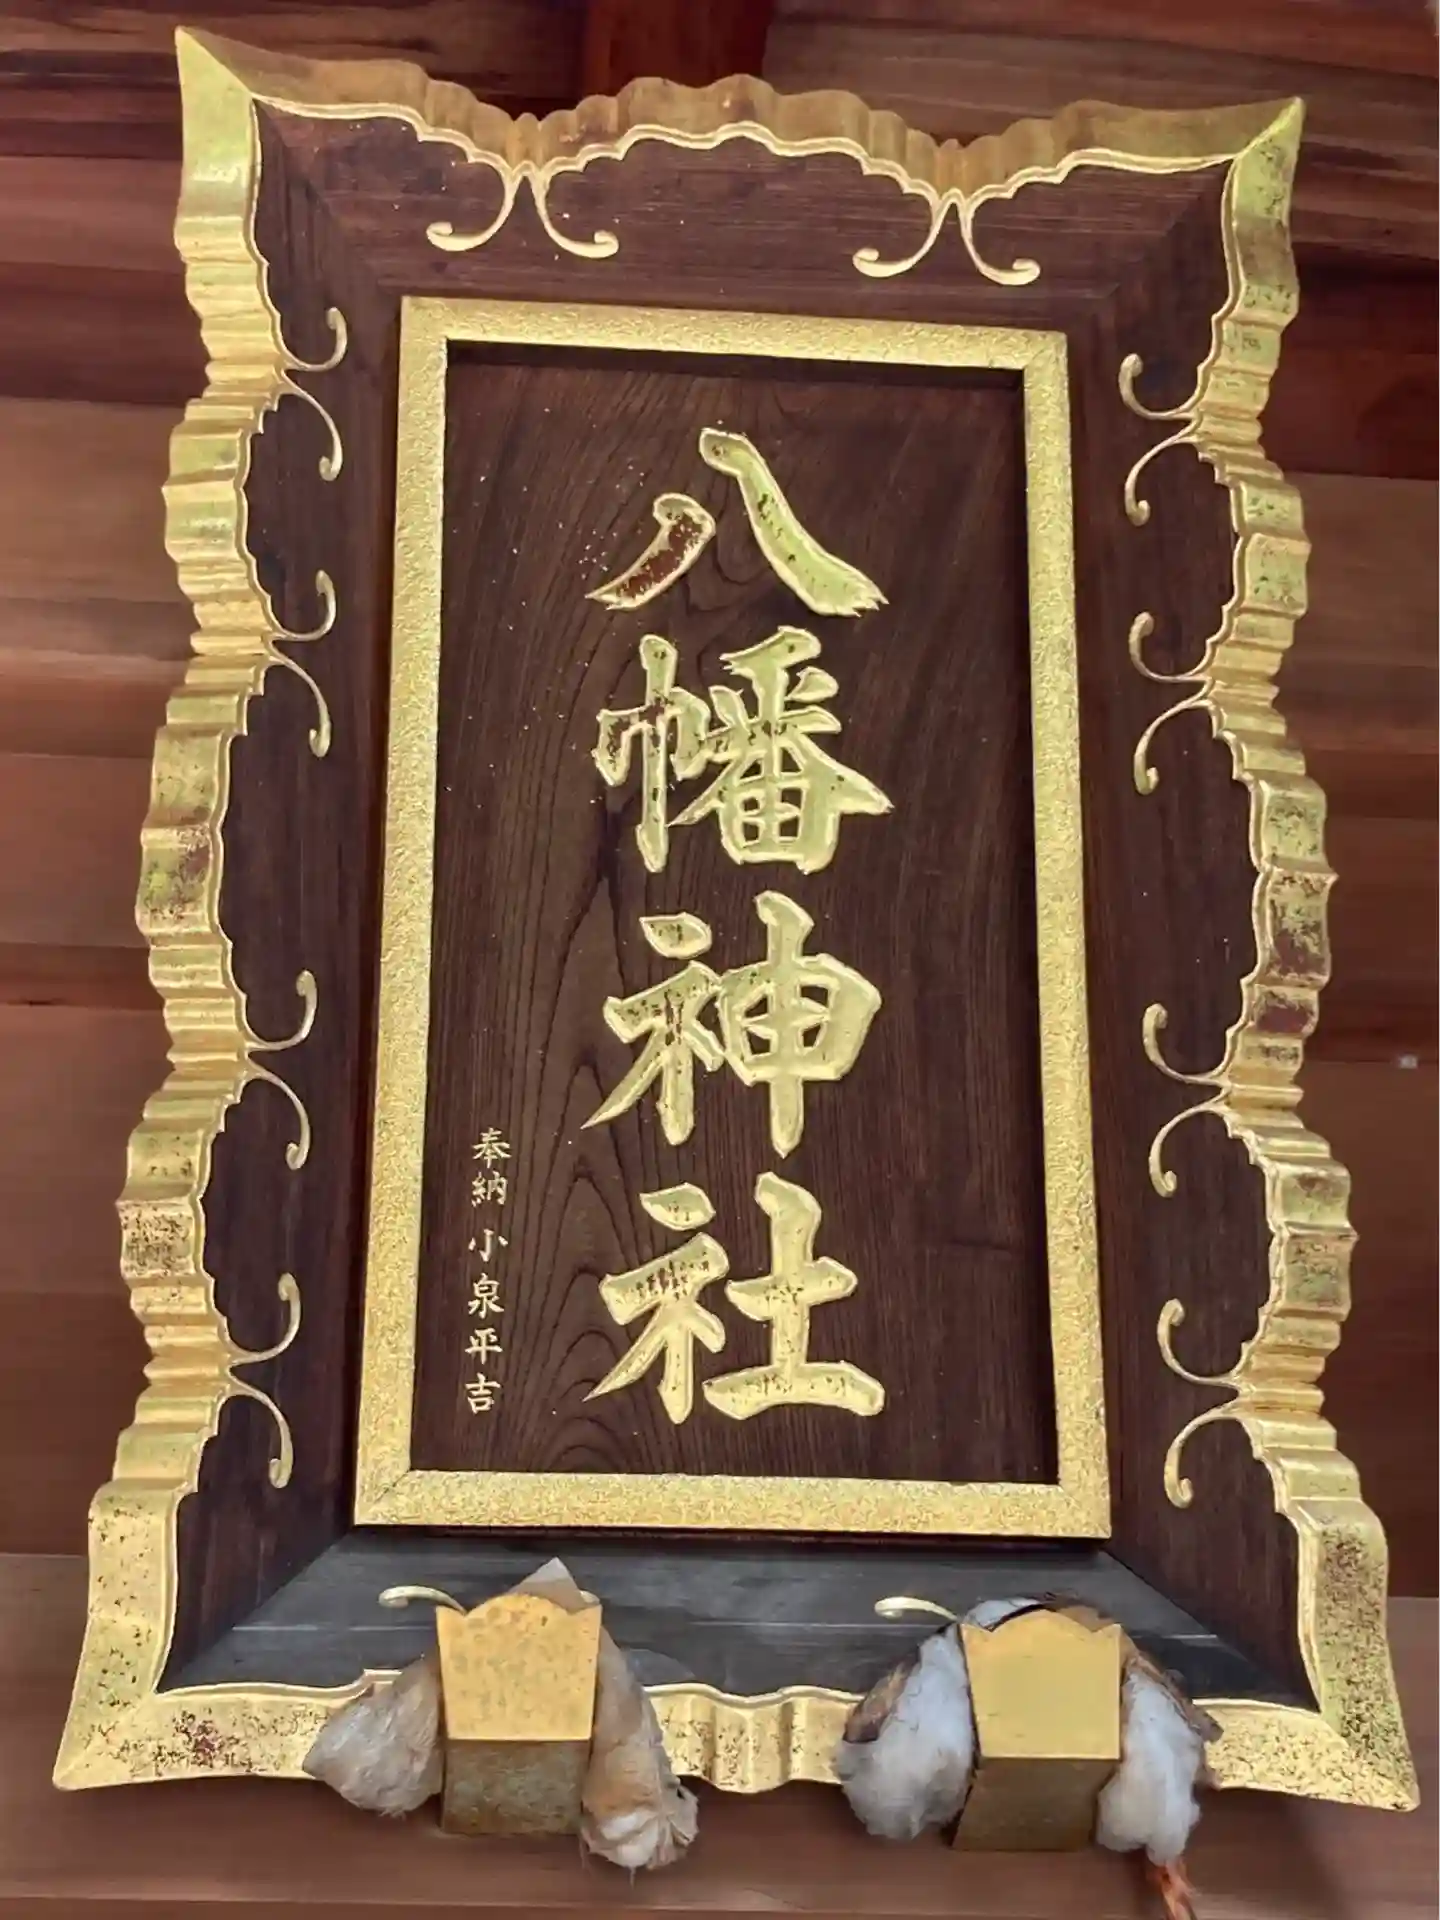 八幡神社
奉納 小泉平吉